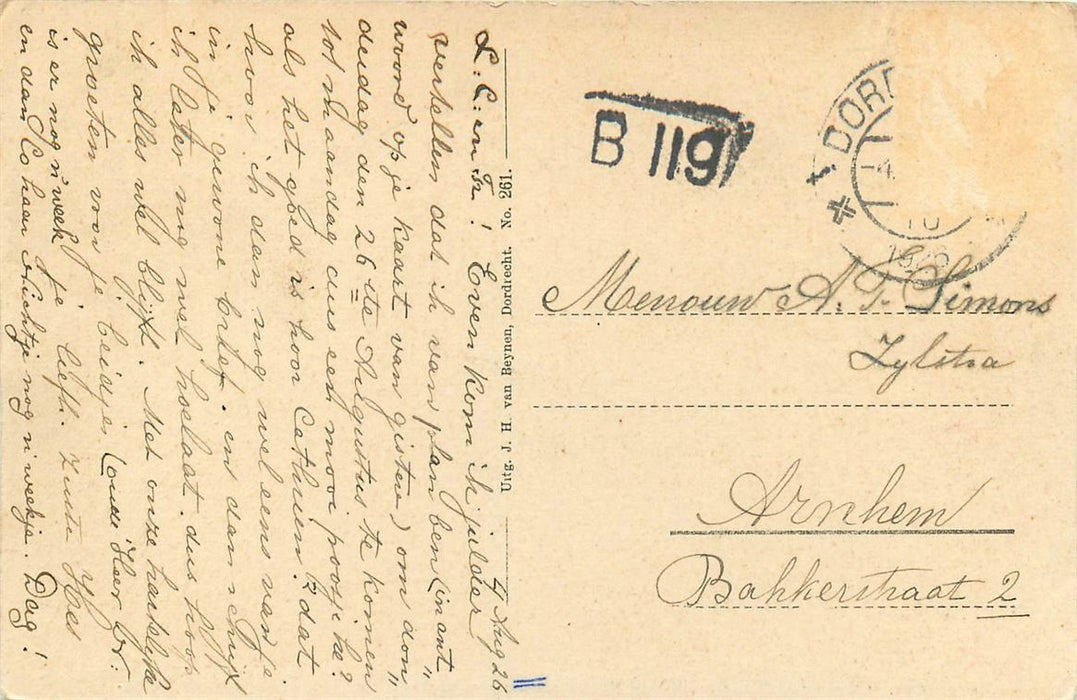 4 Aug 26
L. C. en Fr! Even kom ik jullie
vertellen dat ik van plan ben (in ant„
woord op je kaart van gister) om don„
derdag den 26ste Augustus te komen
tot maandag dus een mooi poosje hè?
als het goed is hoor Cathrien! dat
hoor ik dan nog wel eens van je
in je gewone brief. en dan schrijf
ik later nog wel hoelaat. dus hoop
ik alles wel blijft. Met onze hartelijke
groeten voor je beidjes (oude Heer
is er nog n week je liefh. zuster
en dan Co haar nichtje nog n weekje. Dag!
Uitg. J. H. van Beynen, Dordrecht. No. 261.
B 119
DORD
4
10
1926
Mevrouw A. Fr. Simons
Zylstra
Arnhem
Bakkerstraat 2